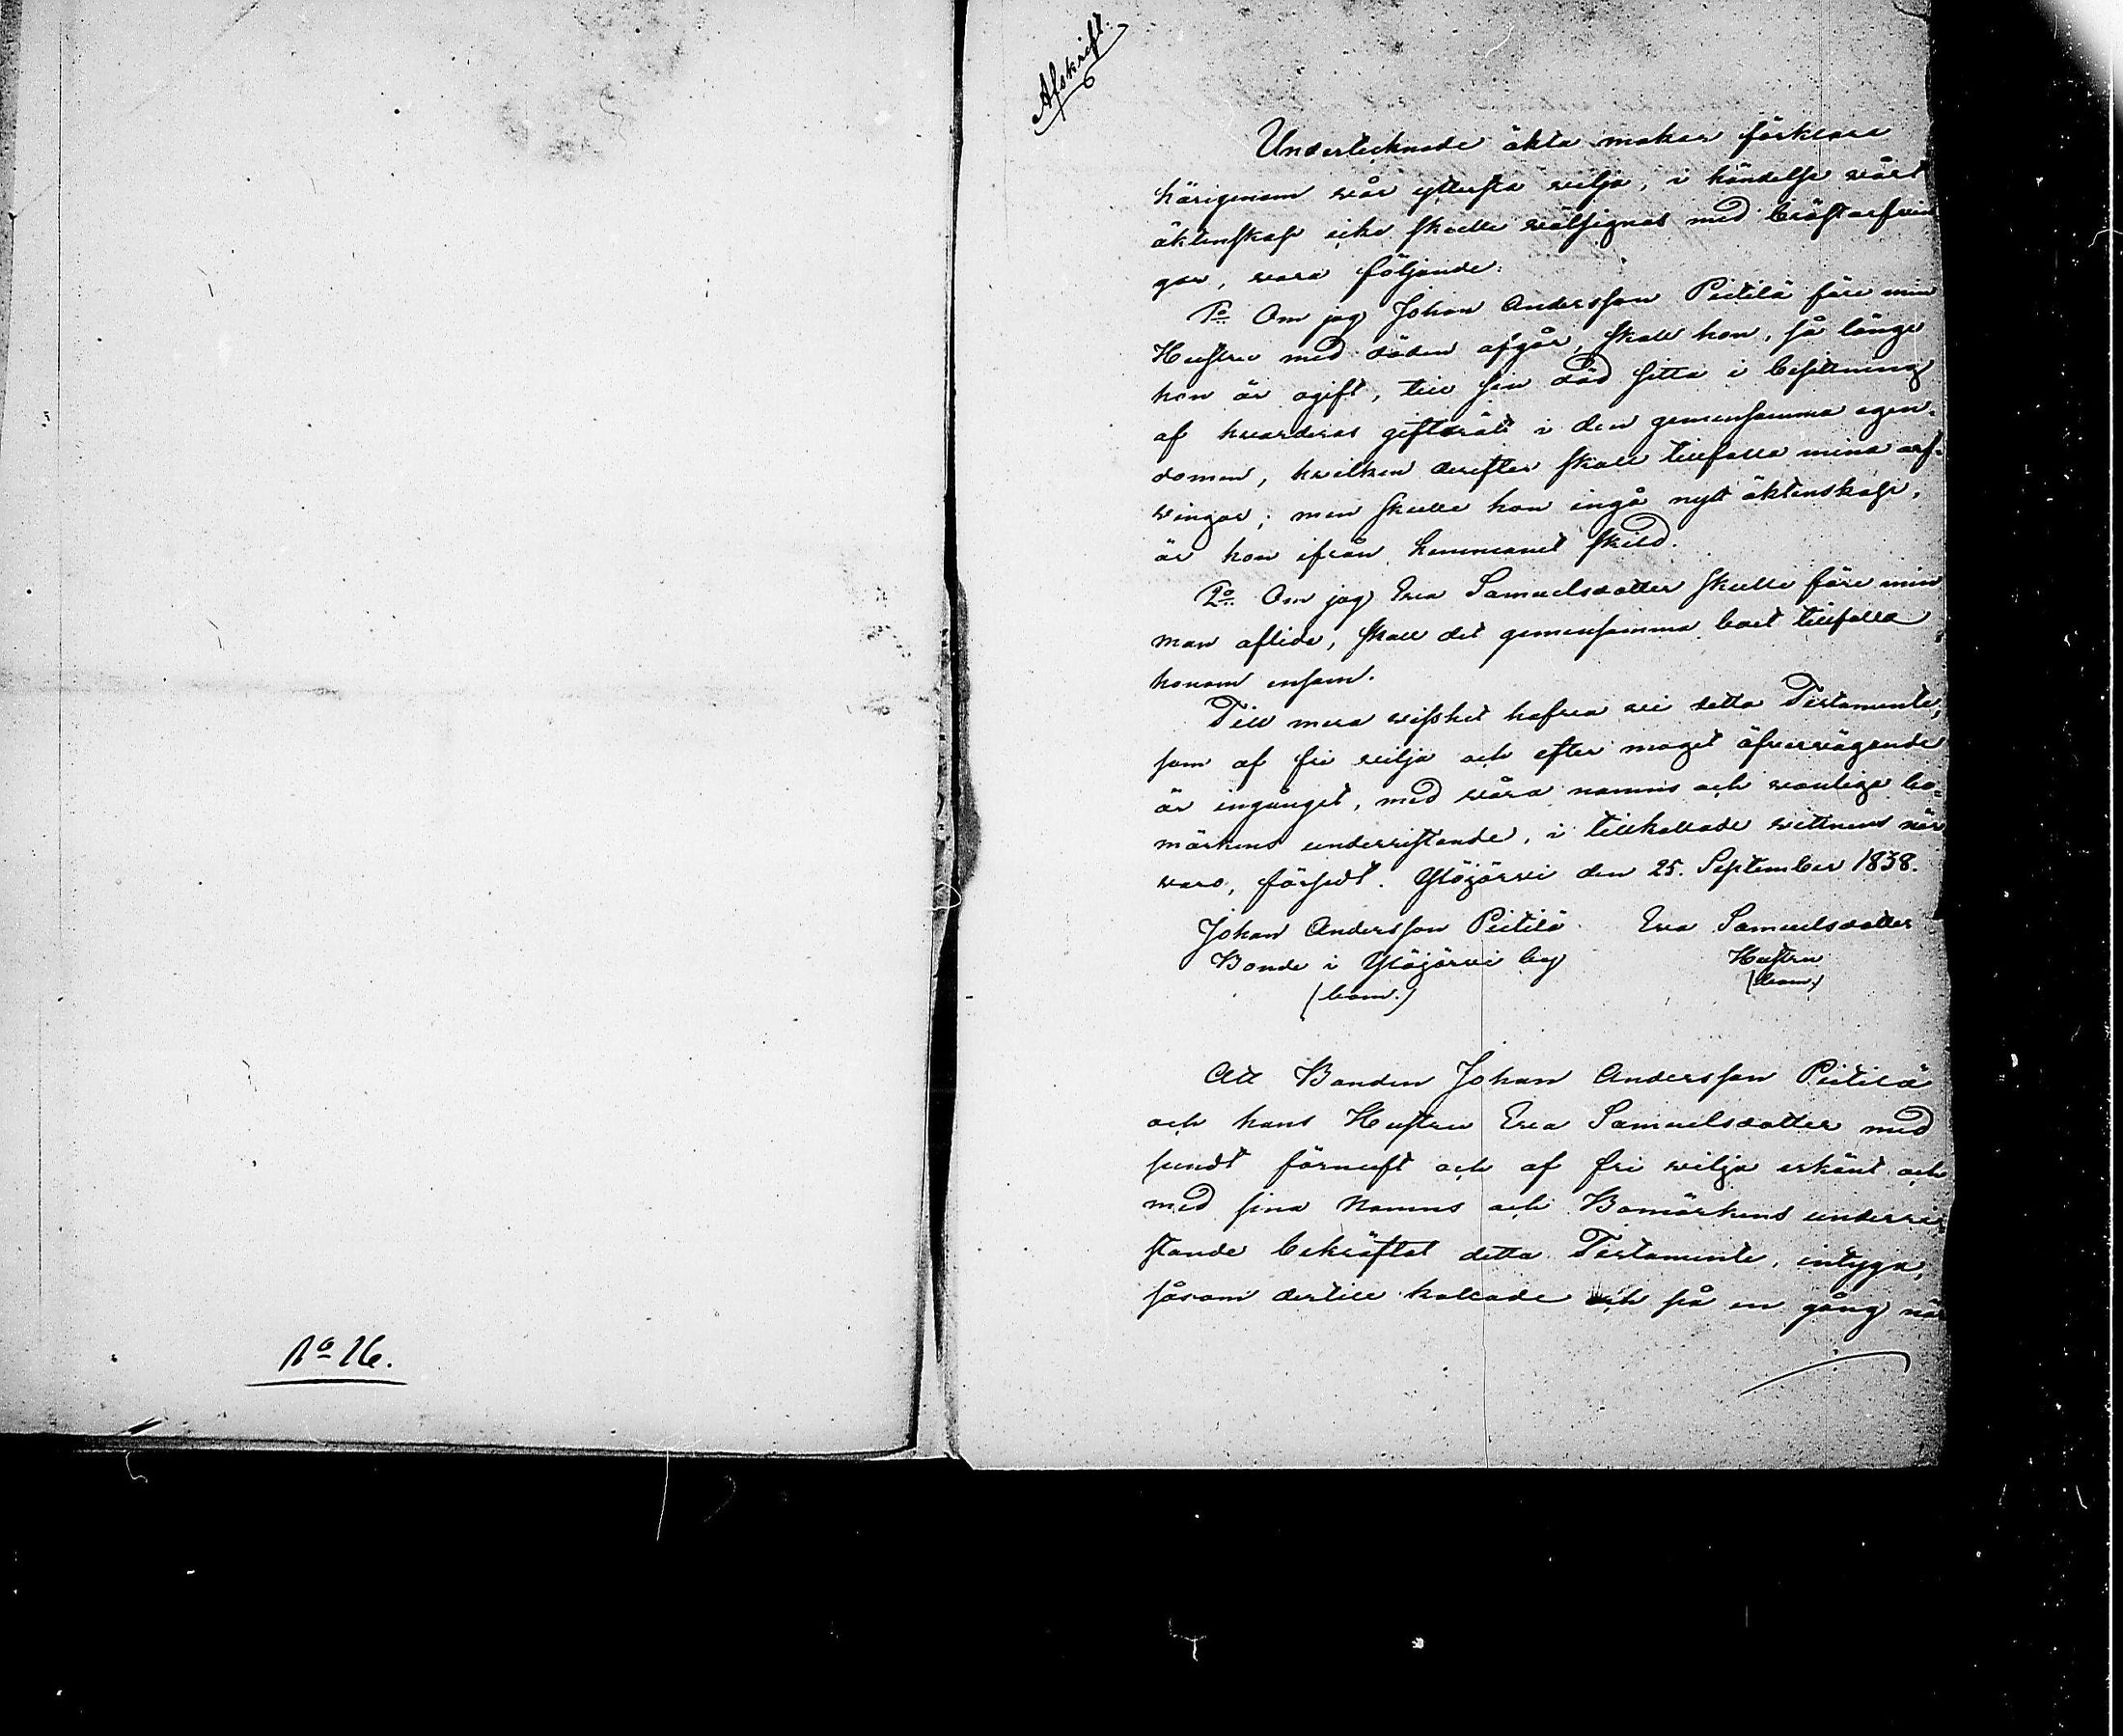 No 26.
Afskrift.
Undertecknade äkta makar förklara
härigenom wår yttersta wilja, i händelse wårt
äktenskap icke skulle wälsignas med bröstarfvin
gar, wara följande:
1o Om jag Johan Andersson Pietilä före min
Hustru med döden afgår, skall hon, så länge
hon är ogift, till sin död sitta i besittning
af hvarderas giftorätt i den gemensamma egen-
domen, hvilken derefter skall tillfalla mina arf-
wingar; men skulle hon ingå nytt äktenskap,
är hon ifrån hemmanet skild.
2o Om jag Eva Samuelsdotter skulle före min
man aflida, skall det gemensamma boet tillfalla
honom ensam.
Till mera wisshet hafva vi detta Testamente,
som af fri wilja och efter moget öfvervägande
är ingånget, med wåra namns och wanliga bo-
märkens underristande, i tillkallade wittnens när
waro, försedt. Ylöjärvi den 25. September 1838.
Johan Andersson Pietilä Eva Samuelsdotter
Bonde i Ylöjärvi by Hustru
(bom.) (bom.)
Att Bonden Johan Andersson Pietilä
och hans Hustru Eva Samuelsdotter med
sundt förnuft och af fri wilja erkänt och
med sina Namns och Bomärkens underri-
stande bekräftat detta Testamente, intyga,
såsom dertill kallade och på en gång när